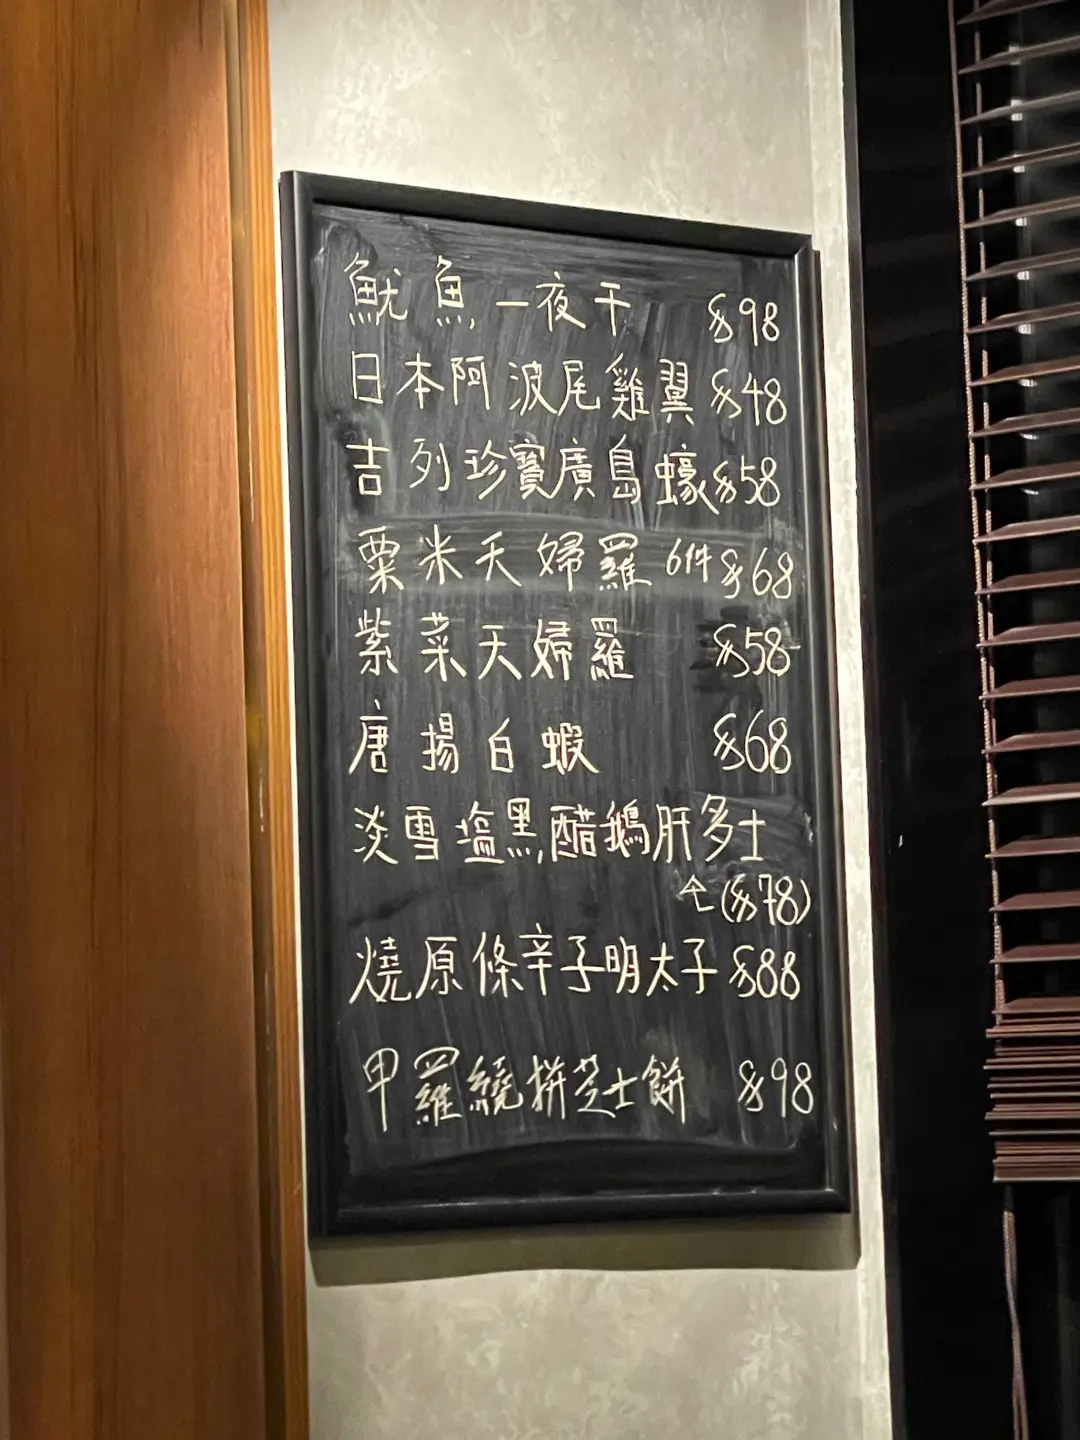 魷魚一夜干 $98
日本阿波尾雞翼 $48
吉列珍寶廣島蠔 $58
粟米天婦羅 6件 $68
紫菜天婦羅 $58
唐揚白蝦 $68
淡雪塩黑醋鵝肝多士
($78)
燒原條辛子明太子 $88
甲羅燒拼芝士餅 $98